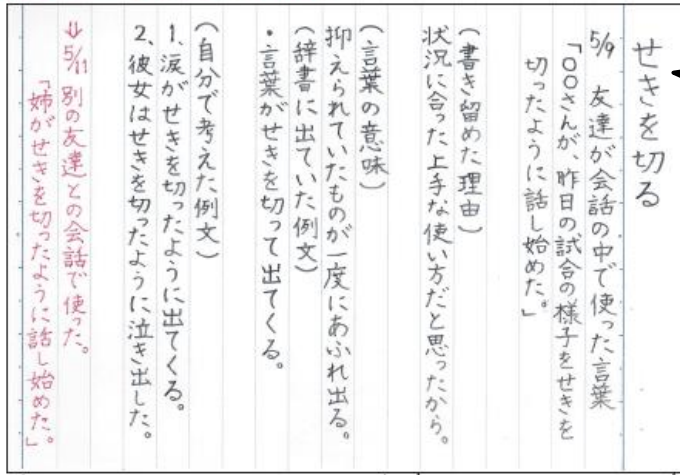 せきを切る
5/9 友達が会話の中で使った言葉
「〇〇さんが、昨日の試合の様子をせきを
切ったように話し始めた。」
(書き留めた理由)
状況に合った上手な使い方だと思ったから。
(言葉の意味)
抑えられていたものが一度にあふれ出る。
(辞書に出ていた例文)
・言葉がせきを切って出てくる。
(自分で考えた例文)
1、涙がせきを切ったように出てくる。
2、彼女はせきを切ったように泣き出した。
⇒5/11 別の友達との会話で使った。
「姉がせきを切ったように話し始めた。」